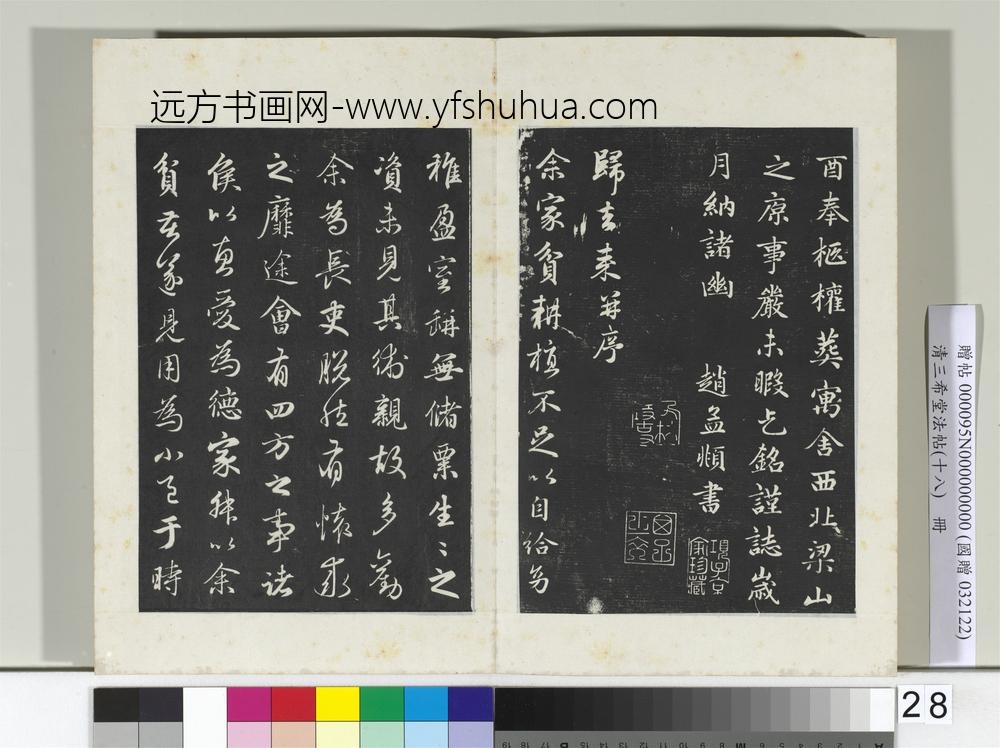 远方书画网-www.yfshuhua.com
酉奉柩權葬寓舍西北梁山
之原事嚴未暇乞銘謹誌歲
月納諸幽 趙孟頫書
項子京
家珍藏
歸去来并序
余家貧耕植不足以自給幼
稚盈室缾無儲粟生〻之
資未見其術親故多勸
余為長吏脱然有懷求
之靡途會有四方之事諸
侯以惠愛為德家叔以余
貧苦遂見用為小邑于時
贈帖 000095N000000000 (國贈 032122)
清三希堂法帖(十八) 冊
28